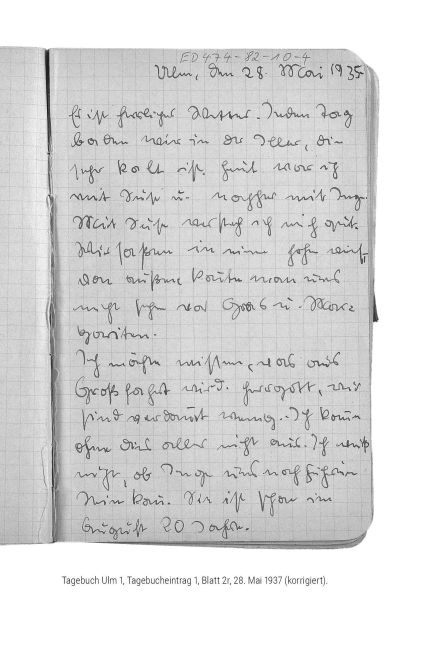 ED474-82-10-4
Ulm, den 28. Mai 1935
Es ist herrliches Wetter. Jeden Tag
baden wir in der Iller, die
sehr kalt ist. Heut war ich
mit Suse u. nachher mit Inge.
Mit Suse versteh ich mich gut.
Wir saßen in einer hohen
von außen konnte man uns
nicht sehen vor Gras u. Mar=
gariten.
Ich möchte wissen, was aus
Großfahrt wird. Herrgott, wir
sind verdammt wenig. Ich kann
ohne das alles nicht aus. Ich weiß
nicht, ob Inge uns noch
sein kann. Sie ist schon im
August 20 Jahre.
Tagebuch Ulm 1, Tagebucheintrag 1, Blatt 2r, 28. Mai 1937 (korrigiert).